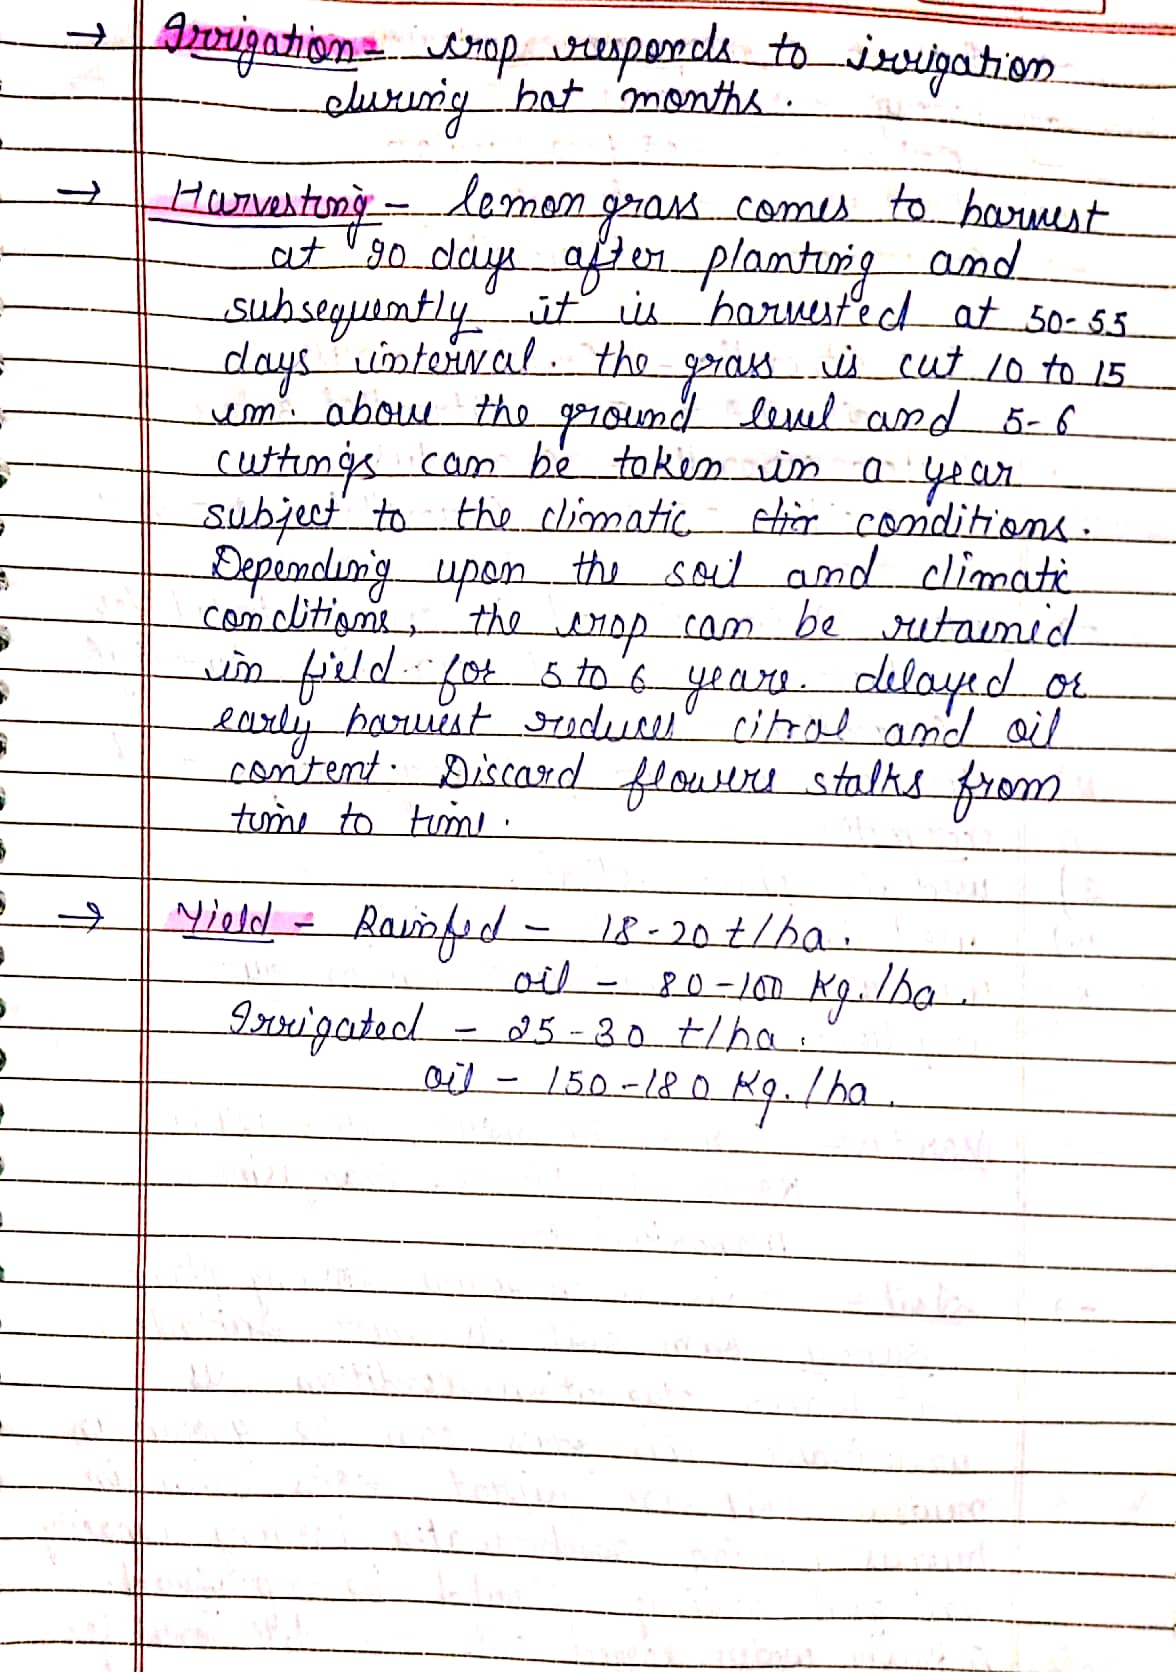 → Irrigation - crop responds to irrigation
during hot months.
→ Harvesting - lemon grass comes to harvest
at 90 days after planting and
subsequently it is harvested at 50-55
days interval. the grass is cut 10 to 15
cm. above the ground level and 5-6
cuttings can be taken in a year
subject to the climatic conditions.
Depending upon the soil and climatic
conditions, the crop can be retained
in field for 5 to 6 years. delayed or
early harvest reduces citral and oil
content. Discard flowers stalks from
time to time.
→ Yield - Rainfed - 18-20 t/ha.
oil - 80-100 Kg./ha.
Irrigated - 25-30 t/ha.
oil - 150-180 Kg./ha.